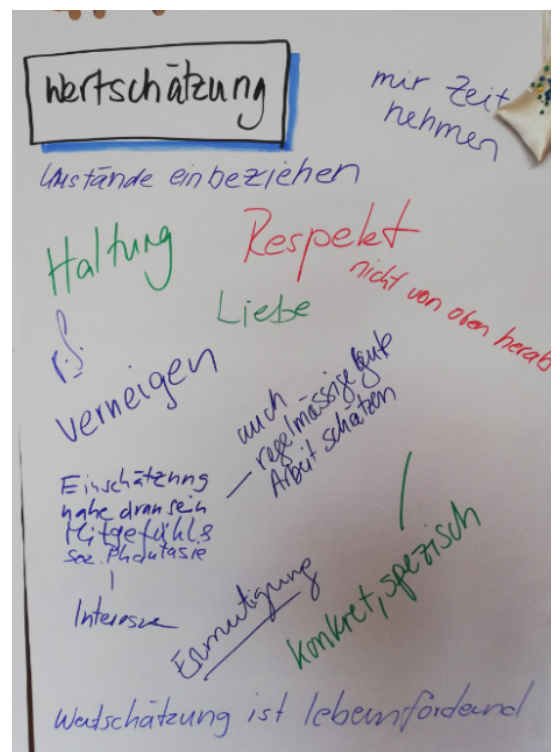 Wertschätzung
mir Zeit
nehmen
Umstände einbeziehen
Haltung
Respekt
nicht von oben herab
Liebe
verneigen
auch
regelmässige gute
Arbeit schätzen
Einschätzung
nahe dran sein
Mitgefühl &
soz. Phantasie
Interesse
Ermutigung
konkret, spezisch
Wertschätzung ist lebensfördernd